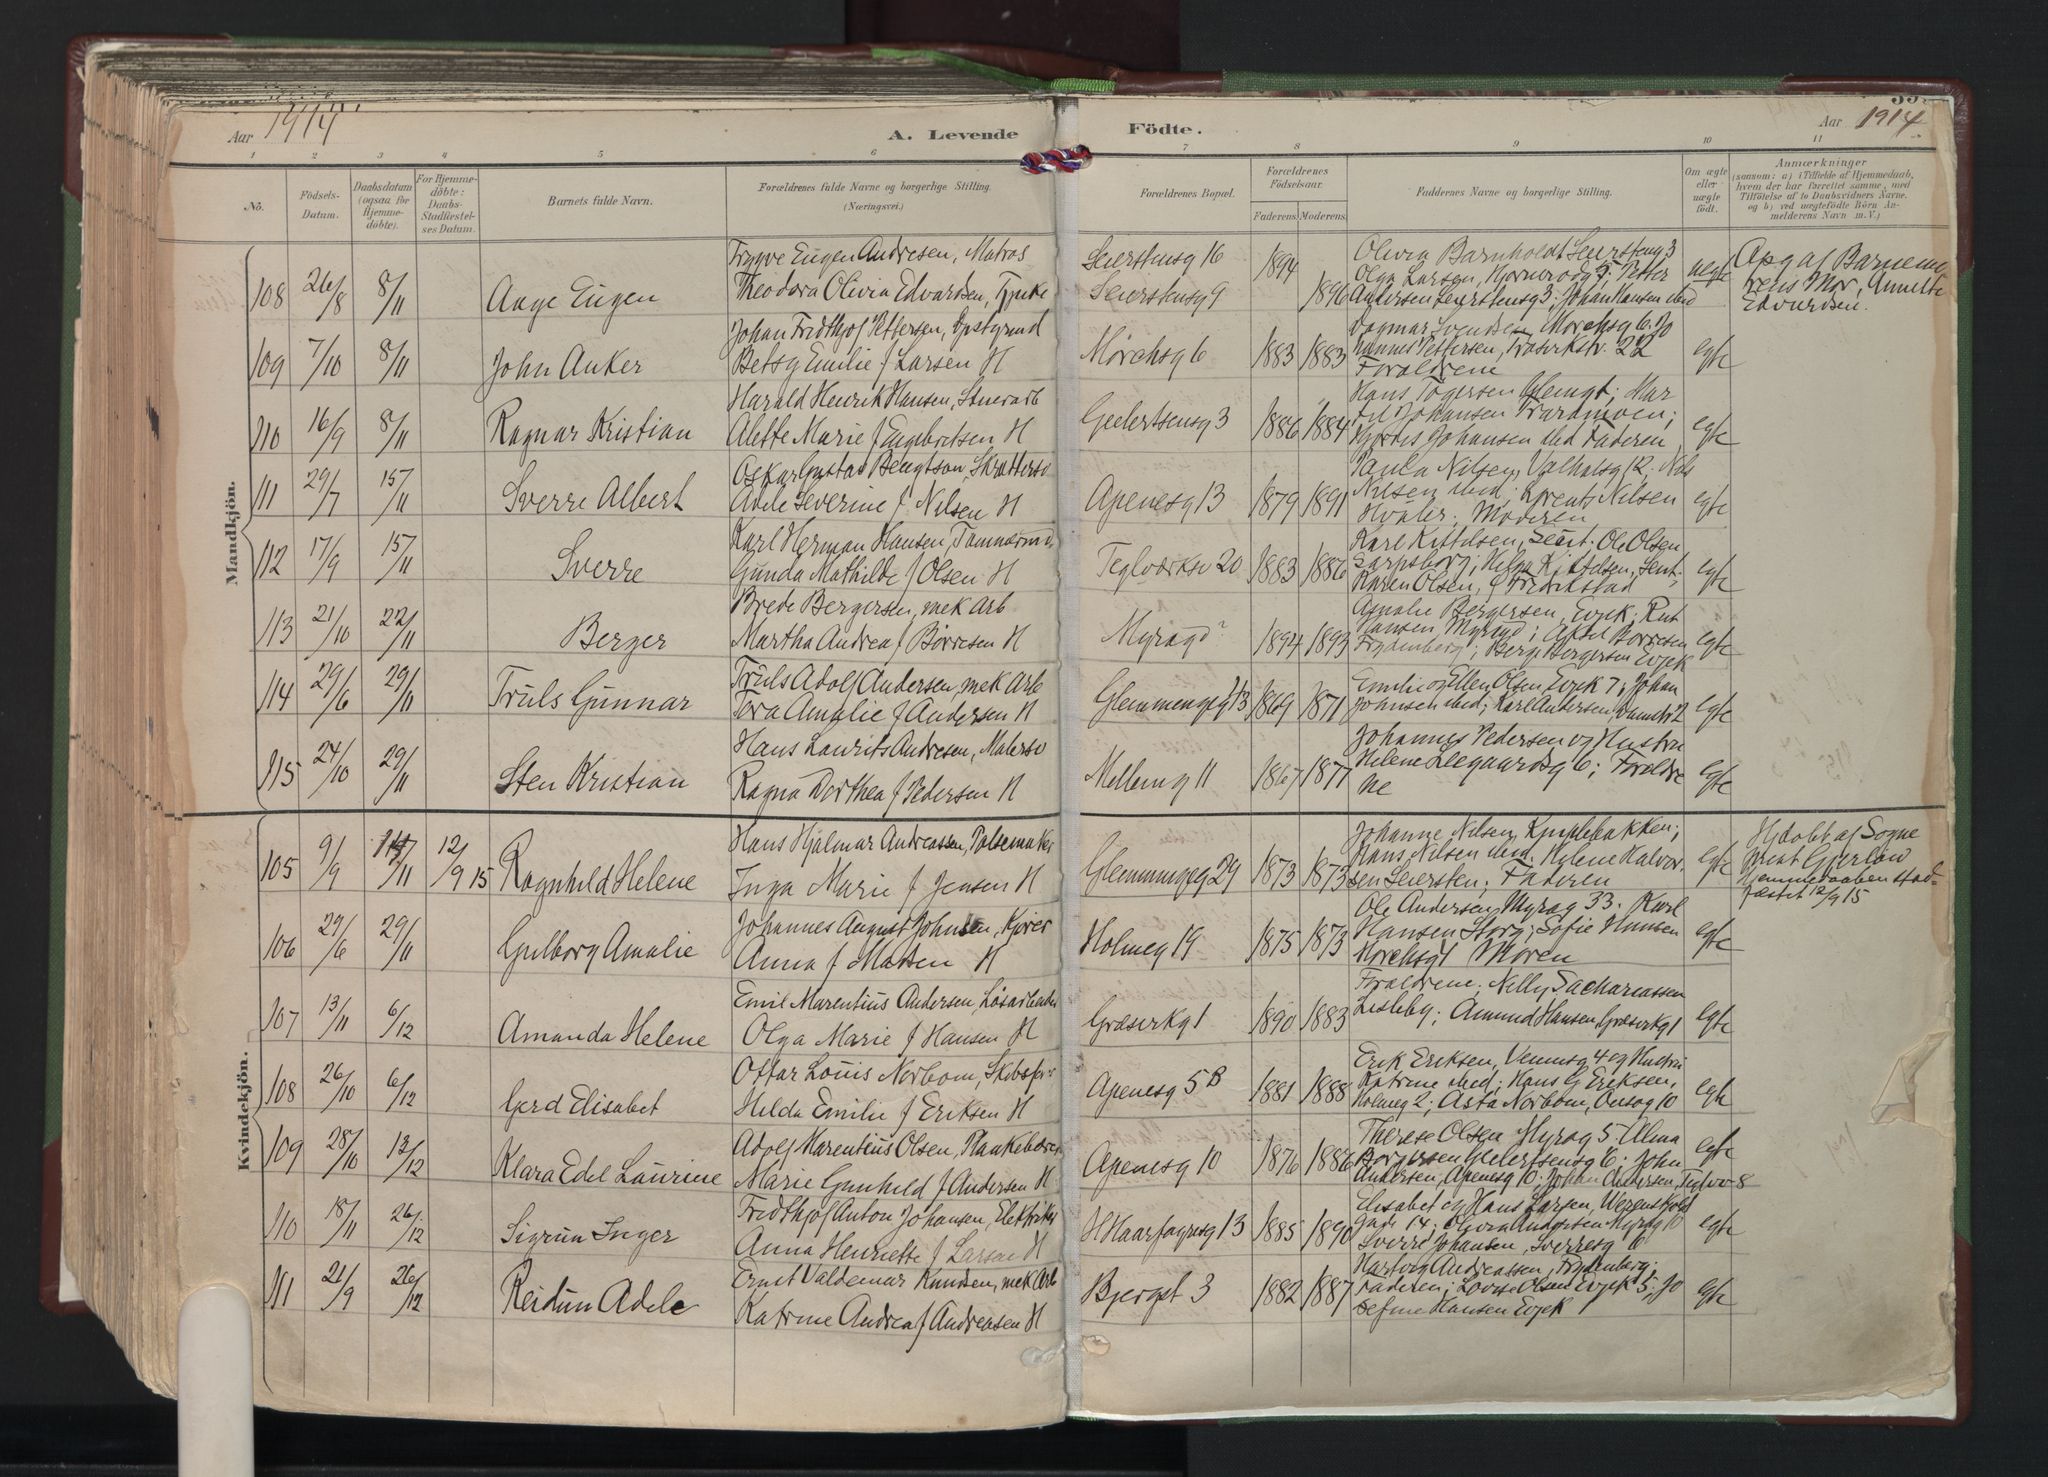 Aar 1914.
A. Levende
Födte.
Aar 1914.
1 2 3 4 5 6 7 8 9 10 11
No.
Födsels-
Datum.
Daabsdatum
(ogsaa for
Hjemme-
döbte).
For Hjemme-
döbte:
Daabs-
Stadfæstel-
ses Datum.
Barnets fulde Navn.
Forældrenes fulde Navne og borgerlige Stilling.
(Næringsvei.)
Forældrenes Bopæl.
Forældrenes
Födselsaar.
Faderens.
Moderens.
Faddernes Navne og borgerlige Stilling.
Om ægte
eller
uægte
født.
Anmærkninger
(saasom: a) i Tilfælde af Hjemmedaab,
hvem der har forrettet samme, med
Tilföielse af to Daabsvidners Navne,
og b) ved uægtefödte Börn An-
melderens Navn m.V.)
Mandkjön.
108 26/8 8/11 Aage Eugen
Trygve Eugen Andresen, Matros
Theodora Olivia Edvardsen, Tjeneste
Seierstensg 16
Seierstensg 9
1894 1896
Olivia Barnholdt Seierstensg 3
Olga Larsen, Petter
Andersen Seierstensg 3; Johan Hansen ibid
uegte
Opg af Barnemo-
rens Mor, Annette
Edvardsen.
109 7/10 8/11 John Anker
Johan Fridthjof Pettersen,
Betsy Emilie f Larsen H
Mörchsg 6
1883 1883
Dagmar Svendsen, Mörchsg 6. Jo
hannes Pettersen, 22
Foraldrene
egte
110 16/9 8/11 Ragnar Kristian
Harald Henrik Hansen, Stenarb
Alette Marie f Engebretsen H
Geelertsensg 3
1886 1884
Hans Tögersen Glemgt; Har
Johansen Traramoen;
Hjördis Johansen ibid Faderen
egte
111 29/7 15/11 Sverre Albert
Oskar Gustav Bengtson,
Adele Severine f. Nilsen H
Apenesg 13
1879 1891
Paula Nilsen, Valhalsg 12. Nils
Nilsen ibid; Nilsen
Hvaler; Moderen
egte
112 17/9 15/11 Sverre
Karl Herman Hansen, Tömmermd
Gunda Mathilde f Olsen H
Teglværksv 20
1883 1886
Karl Kittelsen, Ole Olsen
Sarpsborg; Helga Kittelsen,
Karen Olsen, Fredrikstad
egte
113 21/10 22/11 Berger
Brede Bergersen, mek Arb
Martha Andrea f Börresen H
Myragd
1894 1893
Amalie Bergersen, Evjek; Rut
Hansen Myragd; Aksel Börresen
Frydenberg; Berge Bergersen Evjek
egte
114 29/6 29/11 Truls Gunnar
Truls Adolf Andersen, mek Arb
Tora Amalie f Andersen H
Glemmengg 13
1869 1871
Emilie og Ellen Olsen Evjek 7; Johan
Johansen ibid; Karl Andersen,
egte
115 24/10 29/11 Sten Kristian
Hans Laurits Andresen, Malersv
Ragna Dorthea f Pedersen H
Mellemg 11
1867 1877
Johannes Pedersen og Hustru
Helene Leegaardsg 6; Foreldre
ne
egte
Kvindekjön.
105 9/9 11 12/9 15 Ragnhild Helene
Hans Hjalmar Andreassen, Pölsemaker
Inga Marie f Jensen H
Glemmengg 29
1873 1873
Johanne Nilsen, Kniplebakken;
Hans Nilsen ibid. Helene Halvor
sen Seiersten; Faderen
egte
Hjdobt af Sogne
prest Gjerlöw
Hjemmedaaben stad-
fæstet 12/9 15
106 29/6 29/11 Gulborg Amalie
Johannes August Johnsen, Kjörer
Anna f Madsen H
Holmeg 19
1875 1873
Ole Andersen, Myrag 33. Karl
Hansen Storg; Sofie Hansen
Mörchsg 1 Moren
egte
107 13/11 6/12 Amanda Helene
Emil Marentius Andersen, Lösarbeider
Olga Marie f Hansen H
Græsvikg 1
1890 1883
Foraldrene; Nelly Sachariassen
Lisleby; Amund Hansen, Græsvikg 1
egte
108 26/10 6/12 Gerd Elisabet
Ottar Louis Norbom, Skibsför
Helda Emilie f Eriksen H
Apenesg 5B
1881 1888
Erik Eriksen, Vennesg 4 og Hustru
Katrine ibid; Hans G Eriksen,
Holmeg 2; Asta Norbom, Onsög 10
egte
109 28/10 13/12 Klara Edel Laurine
Adolf Marentius Olsen, Plankebærer
Marie Gunhild f Andersen H.
Apenesg 10
1876 1886
Therese Olsen Myrag 5. Alma
Borgersen Geelertsensg 6; John
Andersen, Apenesg 10; Johan Andersen, Teglvv 8
egte
110 18/11 26/12 Sigrun Inger
Fridthjof Anton Johansen, Elektriker
Anna Henriette f Larsen H
H Haarfagresg 13
1885 1890
Elisabet og Hans Larsen, Werenskjold
Gade 14; Olivia Andersen Myrag 10
Sverre Johansen, Sverresg 6
egte
111 21/9 26/12 Reidun Adele
Ernst Valdemar Knudsen, mek Arb
Katrine Andrea f Andreasen H
Bjergst 3
1882 1887
Hartvig Andreassen, Frydenberg;
Faderen; Lovise Olsen Evjek 5; Jo
sefine Hansen Evjek
egte